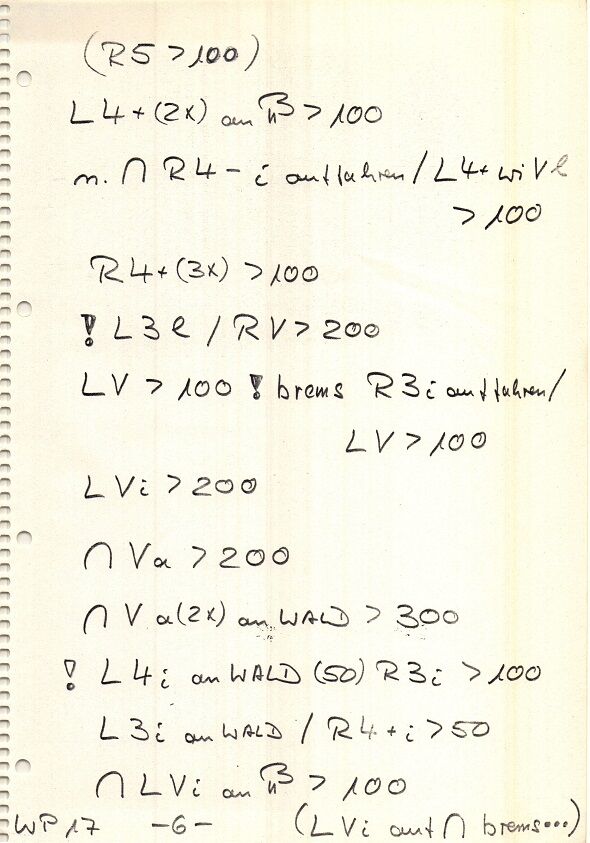 (R5 > 100)
L4+ (2x) an B > 100
n. ∩ R4 - i auffahren / L4+ wi V l
> 100
R4+ (3x) > 100
! L3 l / RV > 200
LV > 100 ! brems R3 i auffahren /
LV > 100
LVi > 200
∩ Va > 200
∩ Va (2x) an WALD > 300
! L4 i an WALD (50) R3 i > 100
L3 i an WALD / R4 + i > 50
∩ LVi an B > 100
WP 17 -6- (LVi auf ∩ brems...)